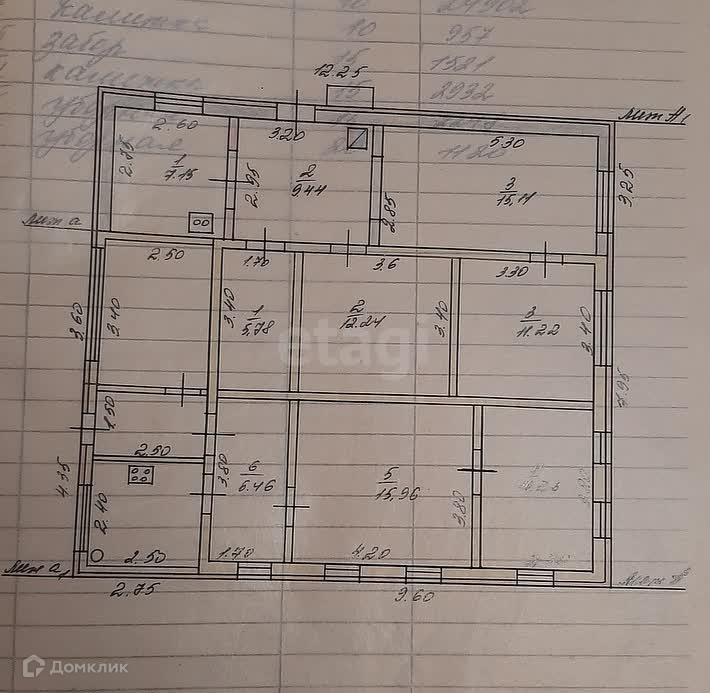 калитка 10 24902
забор 10 957
калитка 15 1521
15 2932
1120
12.25
лит А1
2.60 3.20 5.30
2.75
1
7.15
2.95
2
9.44
2.85
3
15.11
3.25
лит а
2.50 1.70 3.6 3.30
3.60
3.40
3.40
1
5.78
2
12.24
3.40
3
11.22
3.40
etagi
7.95
1.50
2.50
4.35
2.40
3.80
6
6.46
5
15.96
3.80
2.50 1.70 4.20
лит а1
2.75
9.60
Домклик